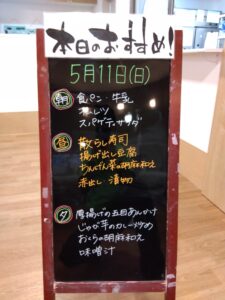 本日のおすすめ!
5月11日(日)
朝 食パン・牛乳
オムレツ
スパゲティサラダ
昼 散らし寿司
揚げ出し豆腐
ちんげん菜の胡麻和え
赤出し・漬物
夕 厚揚げの五目あんかけ
じゃが芋のカレー炒め
おくらの胡麻和え
味噌汁